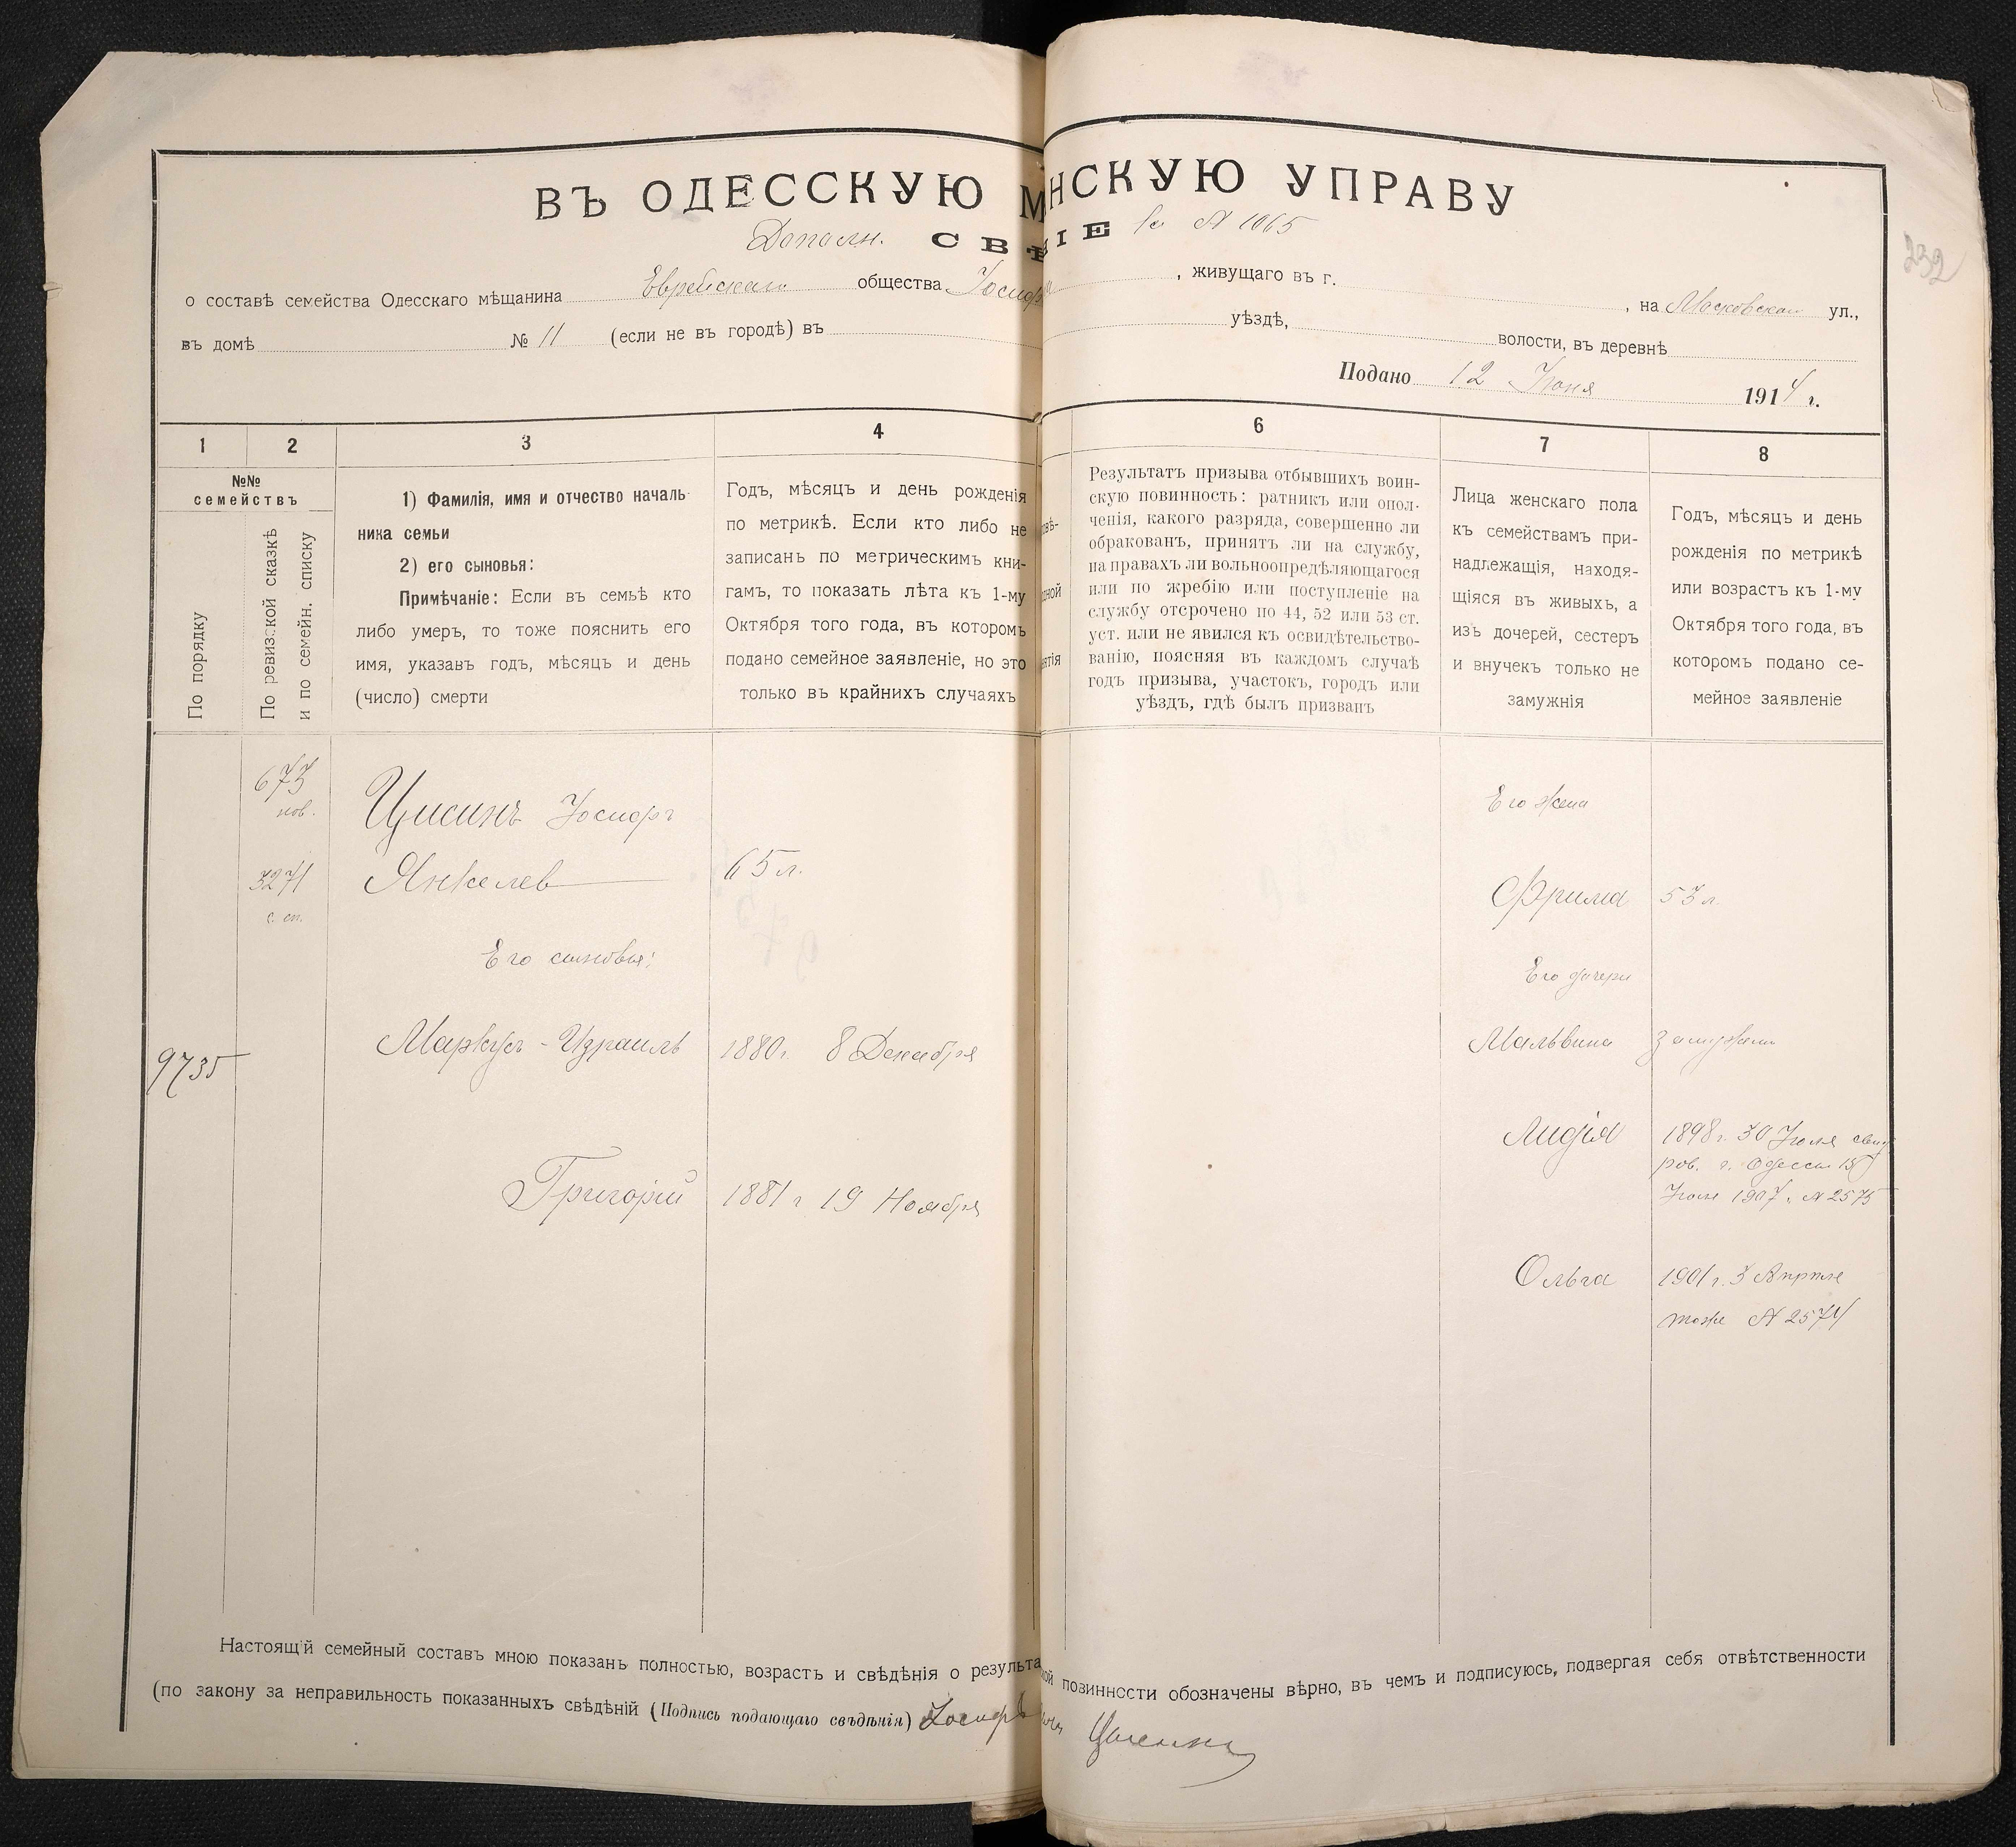 ВЪ ОДЕССКУЮ М НСКУЮ УПРАВУ
Дополн. СВѢ ІЕ къ № 1065
232
о составѣ семейства Одесскаго мѣщанина Еврейскаго общества Іосифа , живущаго въ г. , на Московской ул.,
въ домѣ № 11 (если не въ городѣ) въ уѣздѣ, волости, въ деревнѣ
Подано 12 Іюня 1914 г.
1 2 3 4 6 7 8
№№
семействъ
По порядку
По ревизской сказкѣ
и по семейн. списку
1) Фамилія, имя и отчество началь-
ника семьи
2) его сыновья:
Примѣчаніе: Если въ семьѣ кто
либо умеръ, то тоже пояснить его
имя, указавъ годъ, мѣсяцъ и день
(число) смерти
Годъ, мѣсяцъ и день рожденія
по метрикѣ. Если кто либо не
записанъ по метрическимъ кни-
гамъ, то показать лѣта къ 1-му
Октября того года, въ которомъ
подано семейное заявленіе, но это
только въ крайнихъ случаяхъ
Результатъ призыва отбывшихъ воин-
скую повинность: ратникъ или опол-
ченія, какого разряда, совершенно ли
обракованъ, принятъ ли на службу,
на правахъ ли вольноопредѣляющагося
или по жребію или поступленіе на
службу отсрочено по 44, 52 или 53 ст.
уст. или не явился къ освидѣтельство-
ванію, поясняя въ каждомъ случаѣ
годъ призыва, участокъ, городъ или
уѣздъ, гдѣ былъ призванъ
Лица женскаго пола
къ семействамъ при-
надлежащія, находя-
щіяся въ живыхъ, а
изъ дочерей, сестеръ
и внучекъ только не
замужнія
Годъ, мѣсяцъ и день
рожденія по метрикѣ
или возрастъ къ 1-му
Октября того года, въ
которомъ подано се-
мейное заявленіе
673
нов.
Цисинъ Іосифъ
Его жена
3271
с. сп.
Янкелев 65 л.
Фрима 53 л.
Его сыновья:
Его дочери
9735
Маркусъ-Израиль 1880 г. 8 Декабря
Мальвина замужем
Лидія 1898 г. 30 Іюля
ров. г. Одессы 15
1907 г. № 2575
Григорій 1881 г 19 Ноября
Ольга 1901 г. 3 Апрѣля
тоже № 2574
Настоящій семейный составъ мною показанъ полностью, возрастъ и свѣдѣнія о результа ной повинности обозначены вѣрно, въ чемъ и подписуюсь, подвергая себя отвѣтственности
(по закону за неправильность показанныхъ свѣдѣній (Подпись подающаго свѣдѣнія) Іосифъ Цисинъ